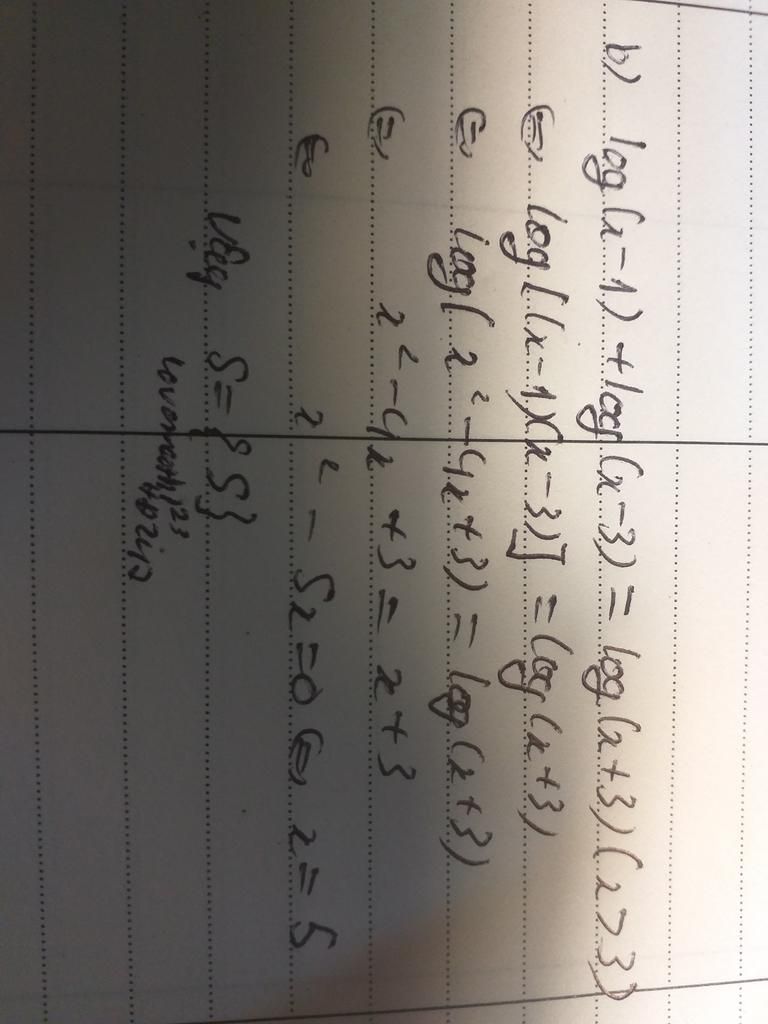 b) log(x-1) + log(x-3) = log(x+3) (x>3)
⇔ log[(x-1)(x-3)] = log(x+3)
⇔ log(x² - 4x + 3) = log(x+3)
⇔ x² - 4x + 3 = x + 3
⇔ x² - 5x = 0 ⇔ x = 5
Vậy S = {5}